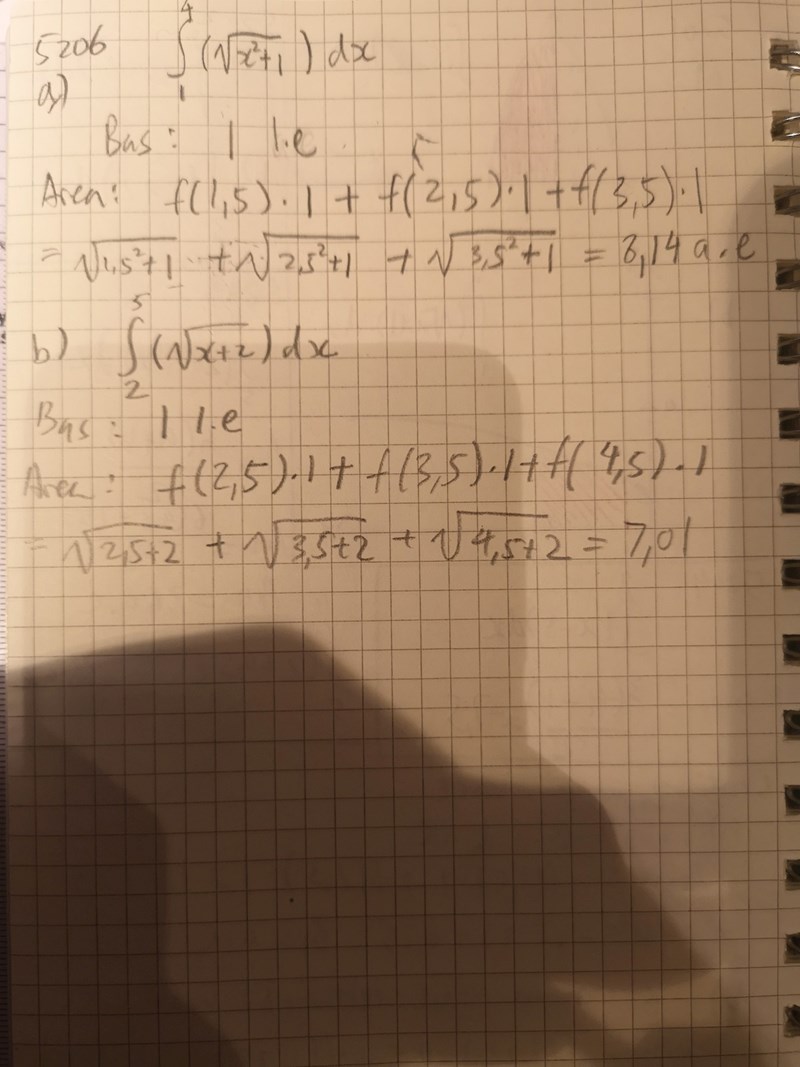 5206 ∫₁⁴ (√(x²+1)) dx
a)
Bas: 1 l.e
Area: f(1,5)·1 + f(2,5)·1 + f(3,5)·1
= √(1,5²+1) + √(2,5²+1) + √(3,5²+1) = 8,14 a.e
b) ∫₂⁵ (√(x+2)) dx
Bas: 1 l.e
Area: f(2,5)·1 + f(3,5)·1 + f(4,5)·1
= √(2,5+2) + √(3,5+2) + √(4,5+2) = 7,01